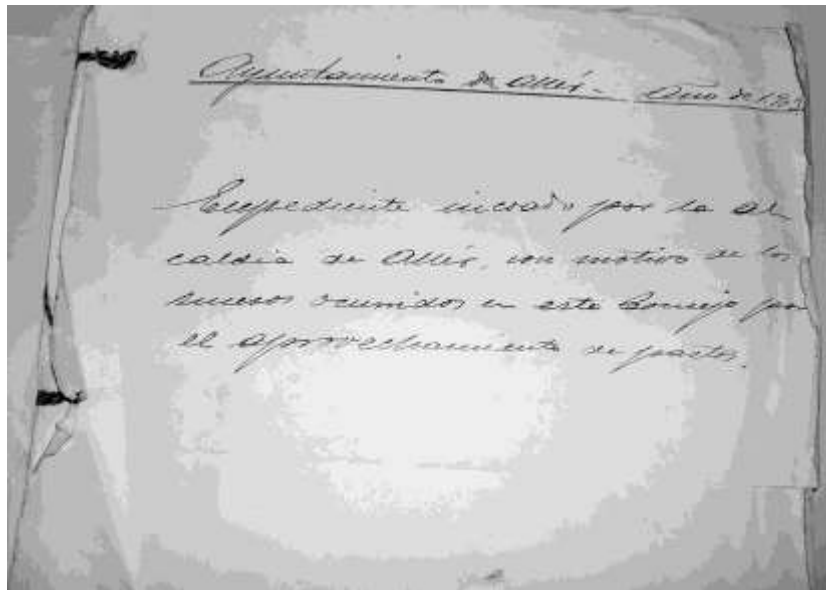 Ayuntamiento de Aller - Año de 19
Expediente incoado por la al
caldia de Aller, con motivo de los
sucesos ocurridos en este Concejo por
el aprovechamiento de pastos.